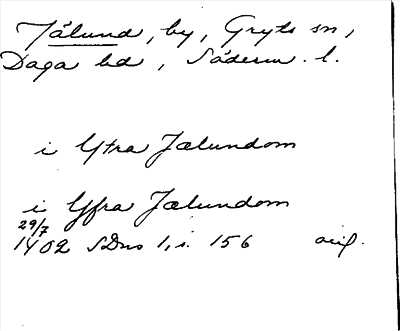 Jälund, by, Gryts sn,
Daga hd, Söderm. l.
i Ytra Jælundom
i Yfra Jælundom
29/7
1402 SDns 1, s. 156 orig.